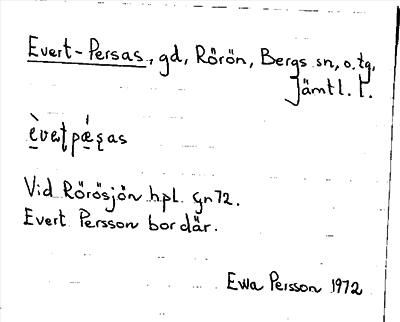 Evert-Persas, gd, Rörön, Bergs sn, o. tg,
Jämtl. l.
È̲vet̩pǽ̲s̨as
Vid Rörösjön hpl. Gn 72.
Evert Persson bor där.
Ewa Persson 1972